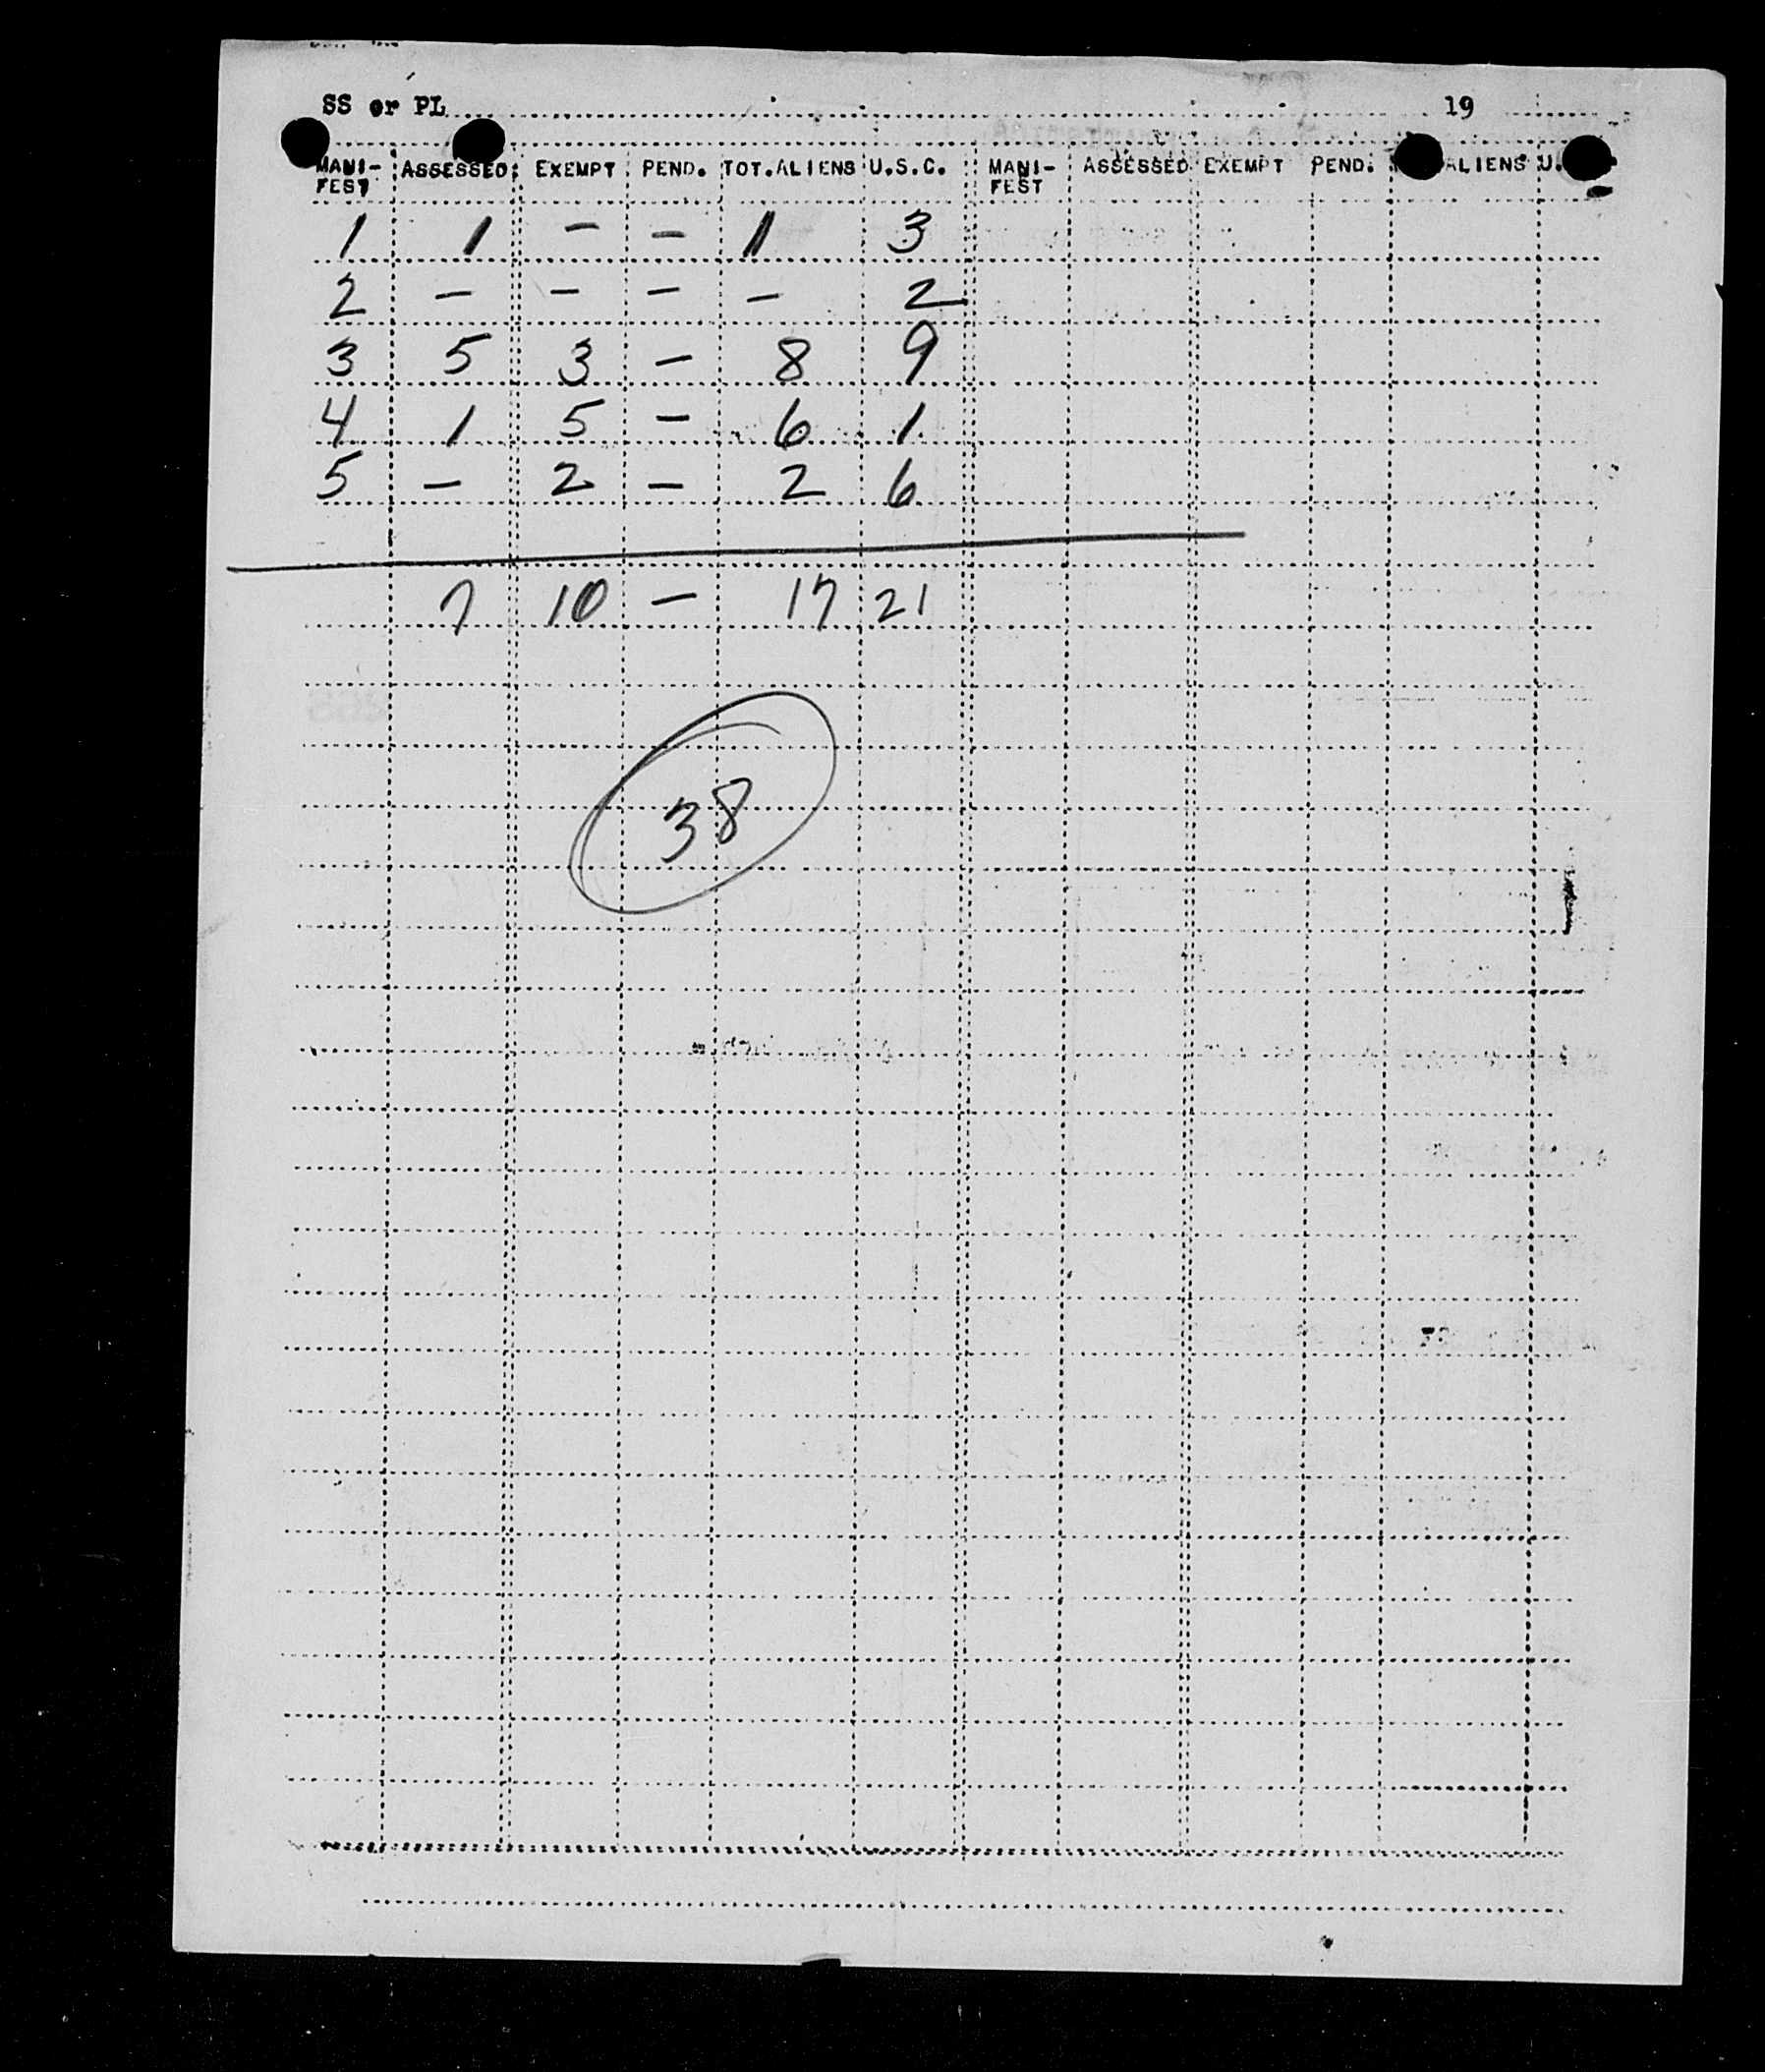 SS or PL 19
MANI-FEST ASSESSED EXEMPT PEND. TOT.ALIENS U.S.C. MANI-FEST ASSESSED EXEMPT PEND. ALIENS U.
1 1 - - 1 3
2 - - - - 2
3 5 3 - 8 9
4 1 5 - 6 1
5 - 2 - 2 6
7 10 - 17 21
38